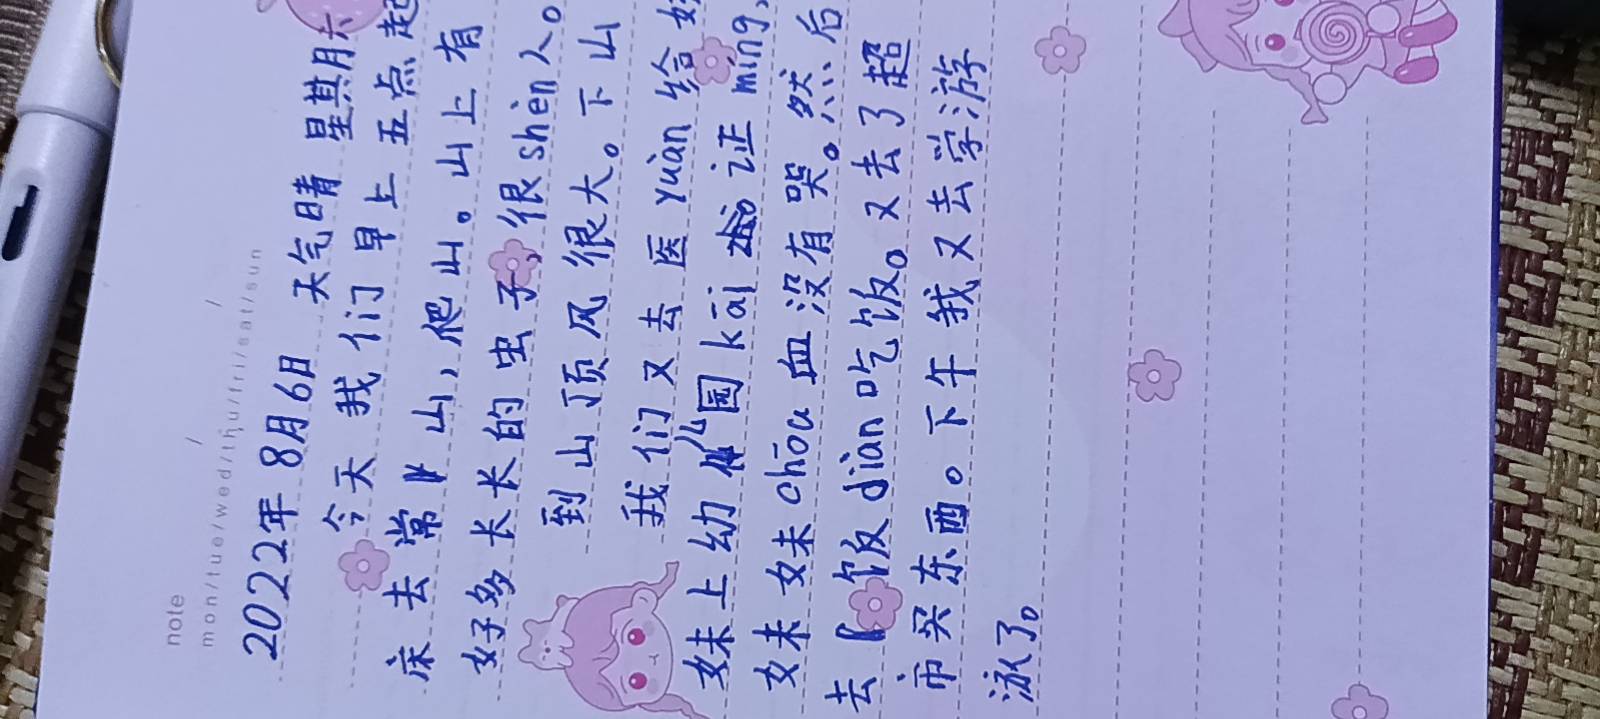 note
mon/tue/wed/thu/fri/sat/sun
2022年8月6日 天气晴 星期六
今天我们早上五点起
床去常山,爬山。山上有
好多长长的虫子,很shèn人。
到山顶风很大。下山
我们又去医yuàn给妹
妹上幼儿园kāi证míng,
妹妹chōu血没有哭。然后
去饭diàn吃饭。又去了超
市买东西。下午我又去学游
泳了。